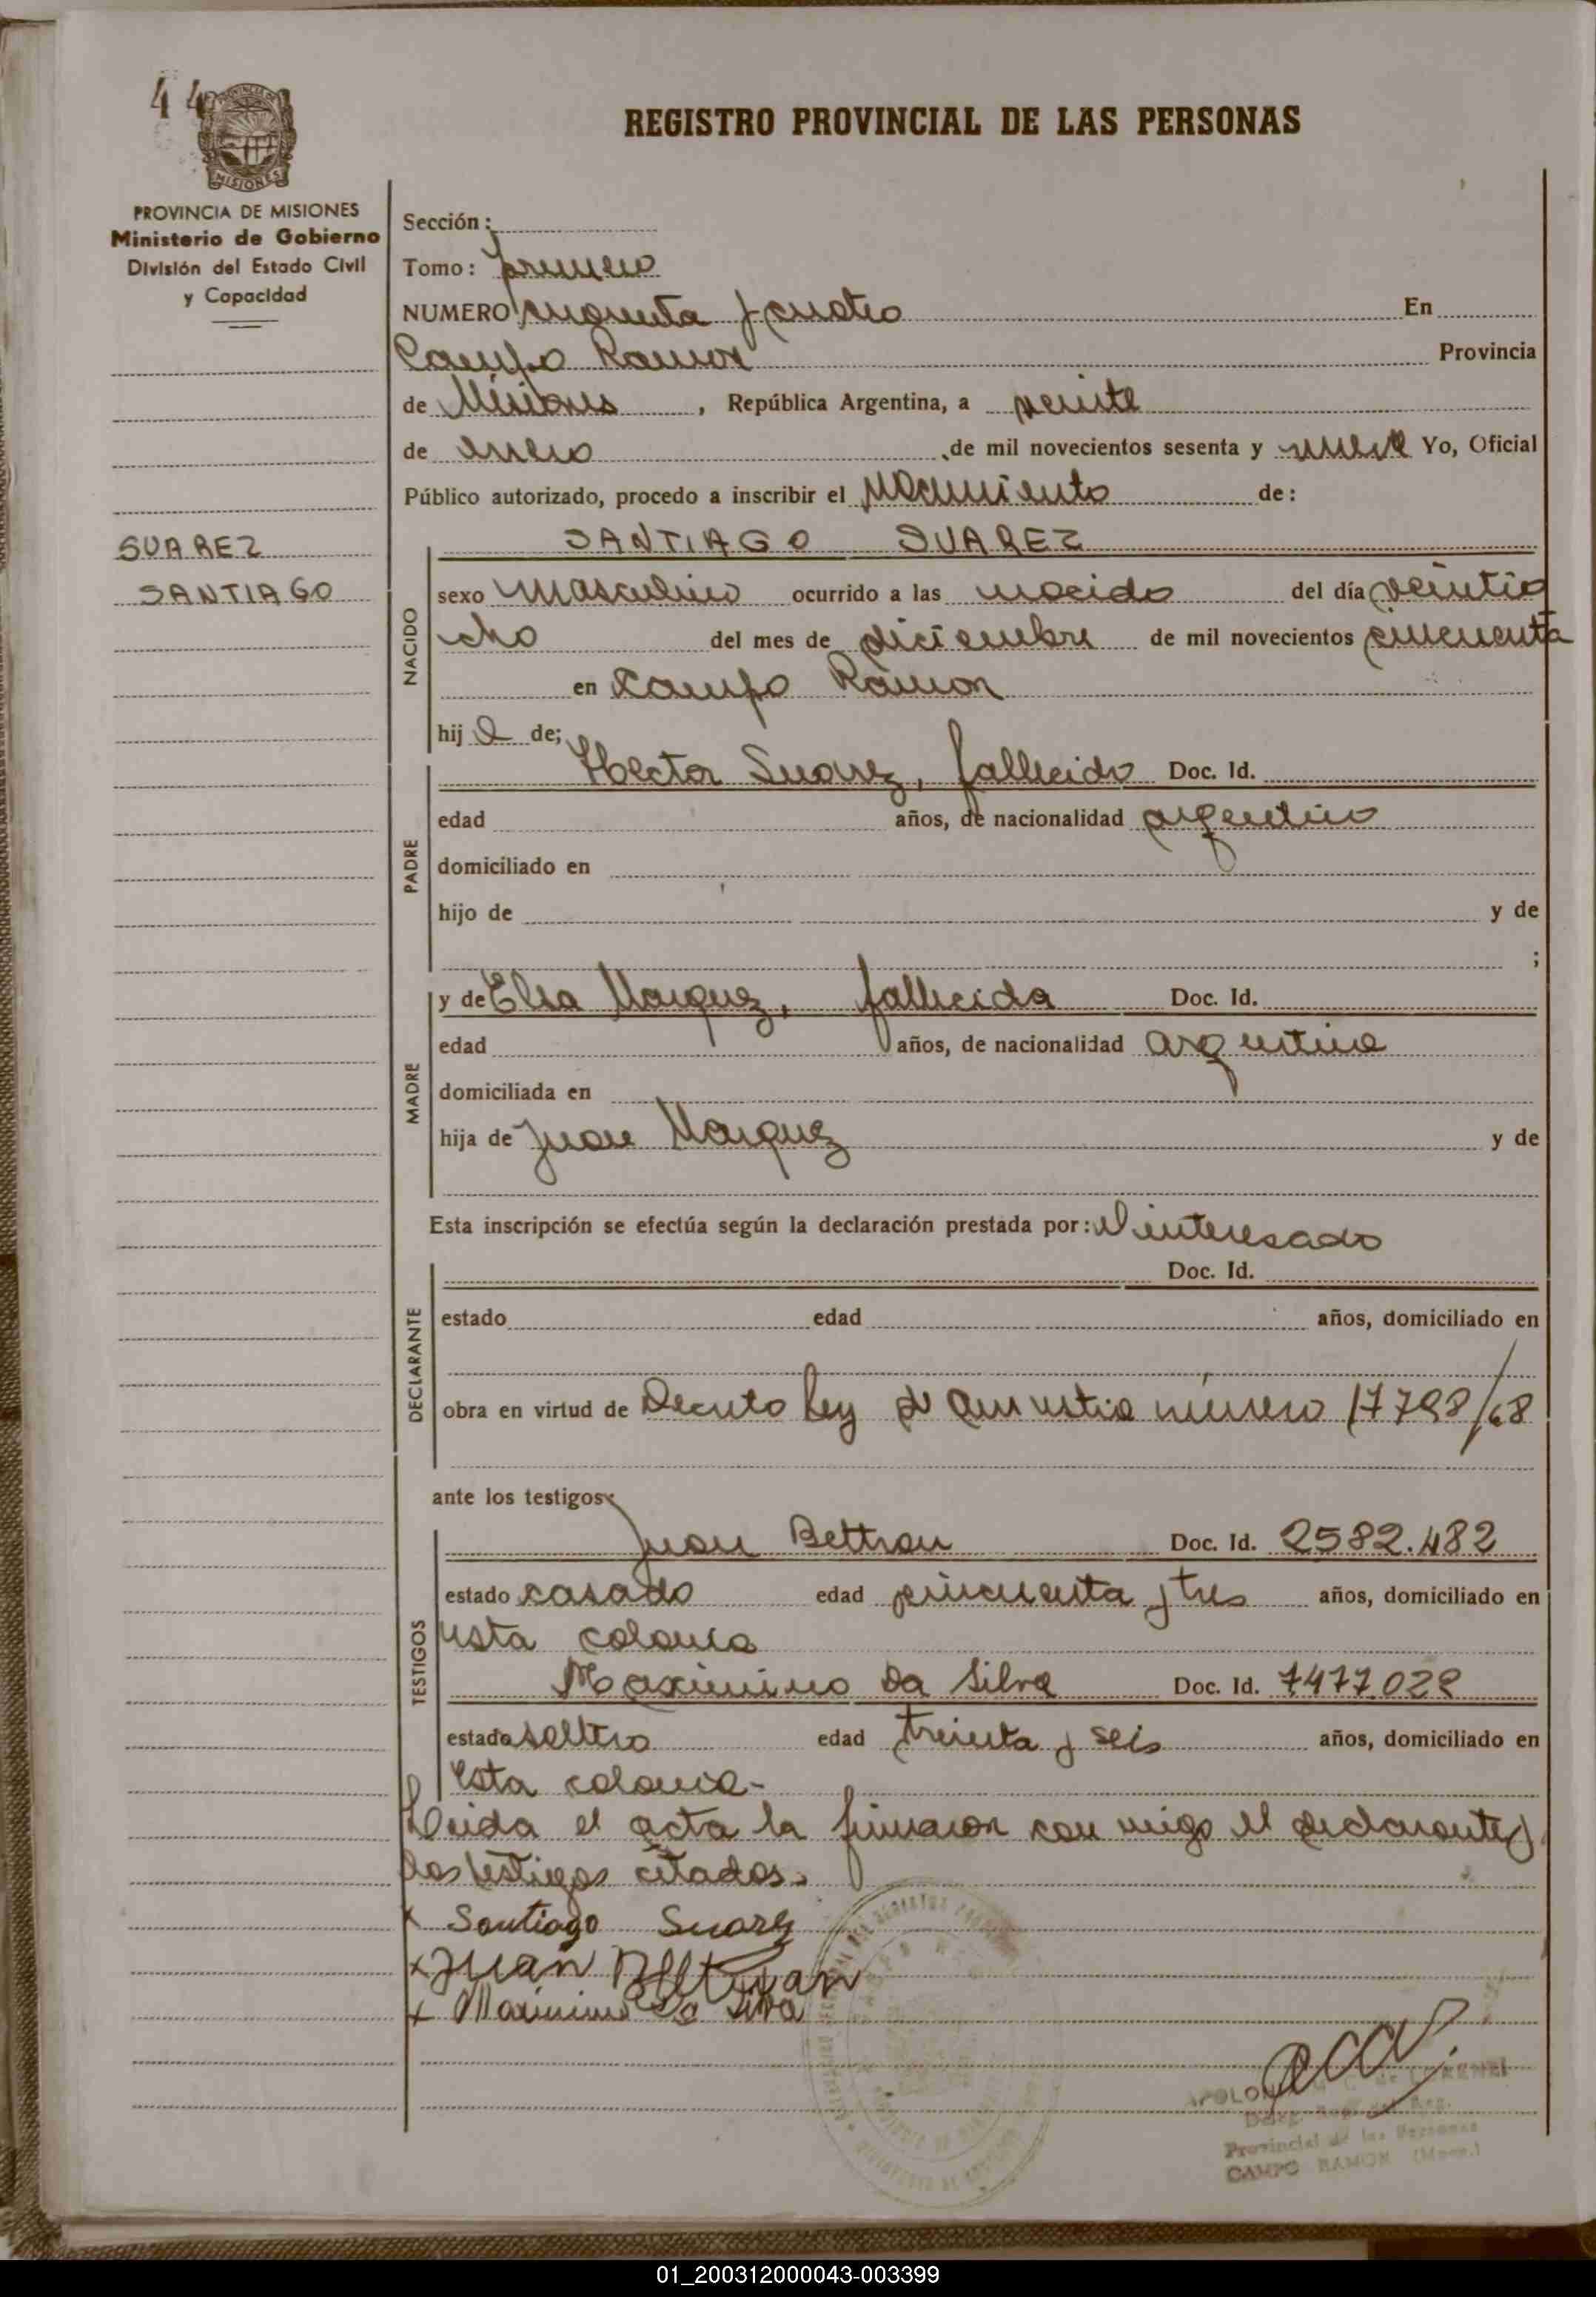 44
REGISTRO PROVINCIAL DE LAS PERSONAS
MISIONES
PROVINCIA DE MISIONES
Ministerio de Gobierno
División del Estado Civil
y Capacidad
SUAREZ
SANTIAGO
Sección:
Tomo: primero
NUMERO cuarenta y cuatro En
Campo Ramon Provincia
de Misiones, República Argentina, a veinte
de enero de mil novecientos sesenta y nueve Yo, Oficial
Público autorizado, procedo a inscribir el Nacimiento de:
NACIDO
SANTIAGO SUAREZ
sexo Masculino ocurrido a las nacido del día veintio
cho del mes de diciembre de mil novecientos cincuenta
en Campo Ramon
hijo de;
PADRE
Hector Suarez, fallecido Doc. Id.
edad años, de nacionalidad argentino
domiciliado en
hijo de y de
;
MADRE
y de Elsa Marquez, fallecida Doc. Id.
edad años, de nacionalidad argentina
domiciliada en
hija de Juan Marquez y de
Esta inscripción se efectúa según la declaración prestada por: el interesado
DECLARANTE
Doc. Id.
estado edad años, domiciliado en
obra en virtud de Decreto Ley de amnistia número 17798/68
ante los testigos:
TESTIGOS
Juan Beltran Doc. Id. 2582.482
estado casado edad cincuenta y tres años, domiciliado en
esta colonia
Maximino Da Silva Doc. Id. 7477.029
estado soltero edad treinta y seis años, domiciliado en
esta colonia-
Leida el acta la firmaron con migo el declarante y
los testigos citados.
x Santiago Suarez
x Juan Beltran
x Maximino Da Silva
Provincial de las Personas
CAMPO RAMON (Mnes.)
01_200312000043-003399